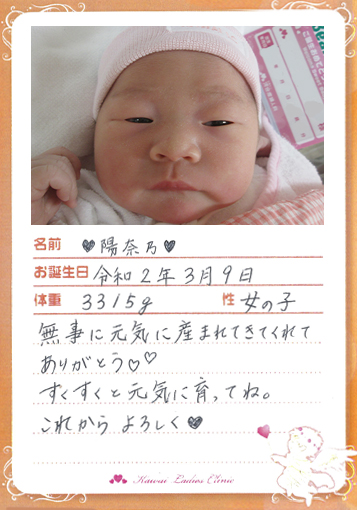 名前 ♥陽奈乃♥
お誕生日 令和2年3月9日
体重 3315g 性 女の子
無事に元気に産まれてきてくれて
ありがとう♡♡
すくすくと元気に育ってね。
これから よろしく♥
Kawai Ladies Clinic